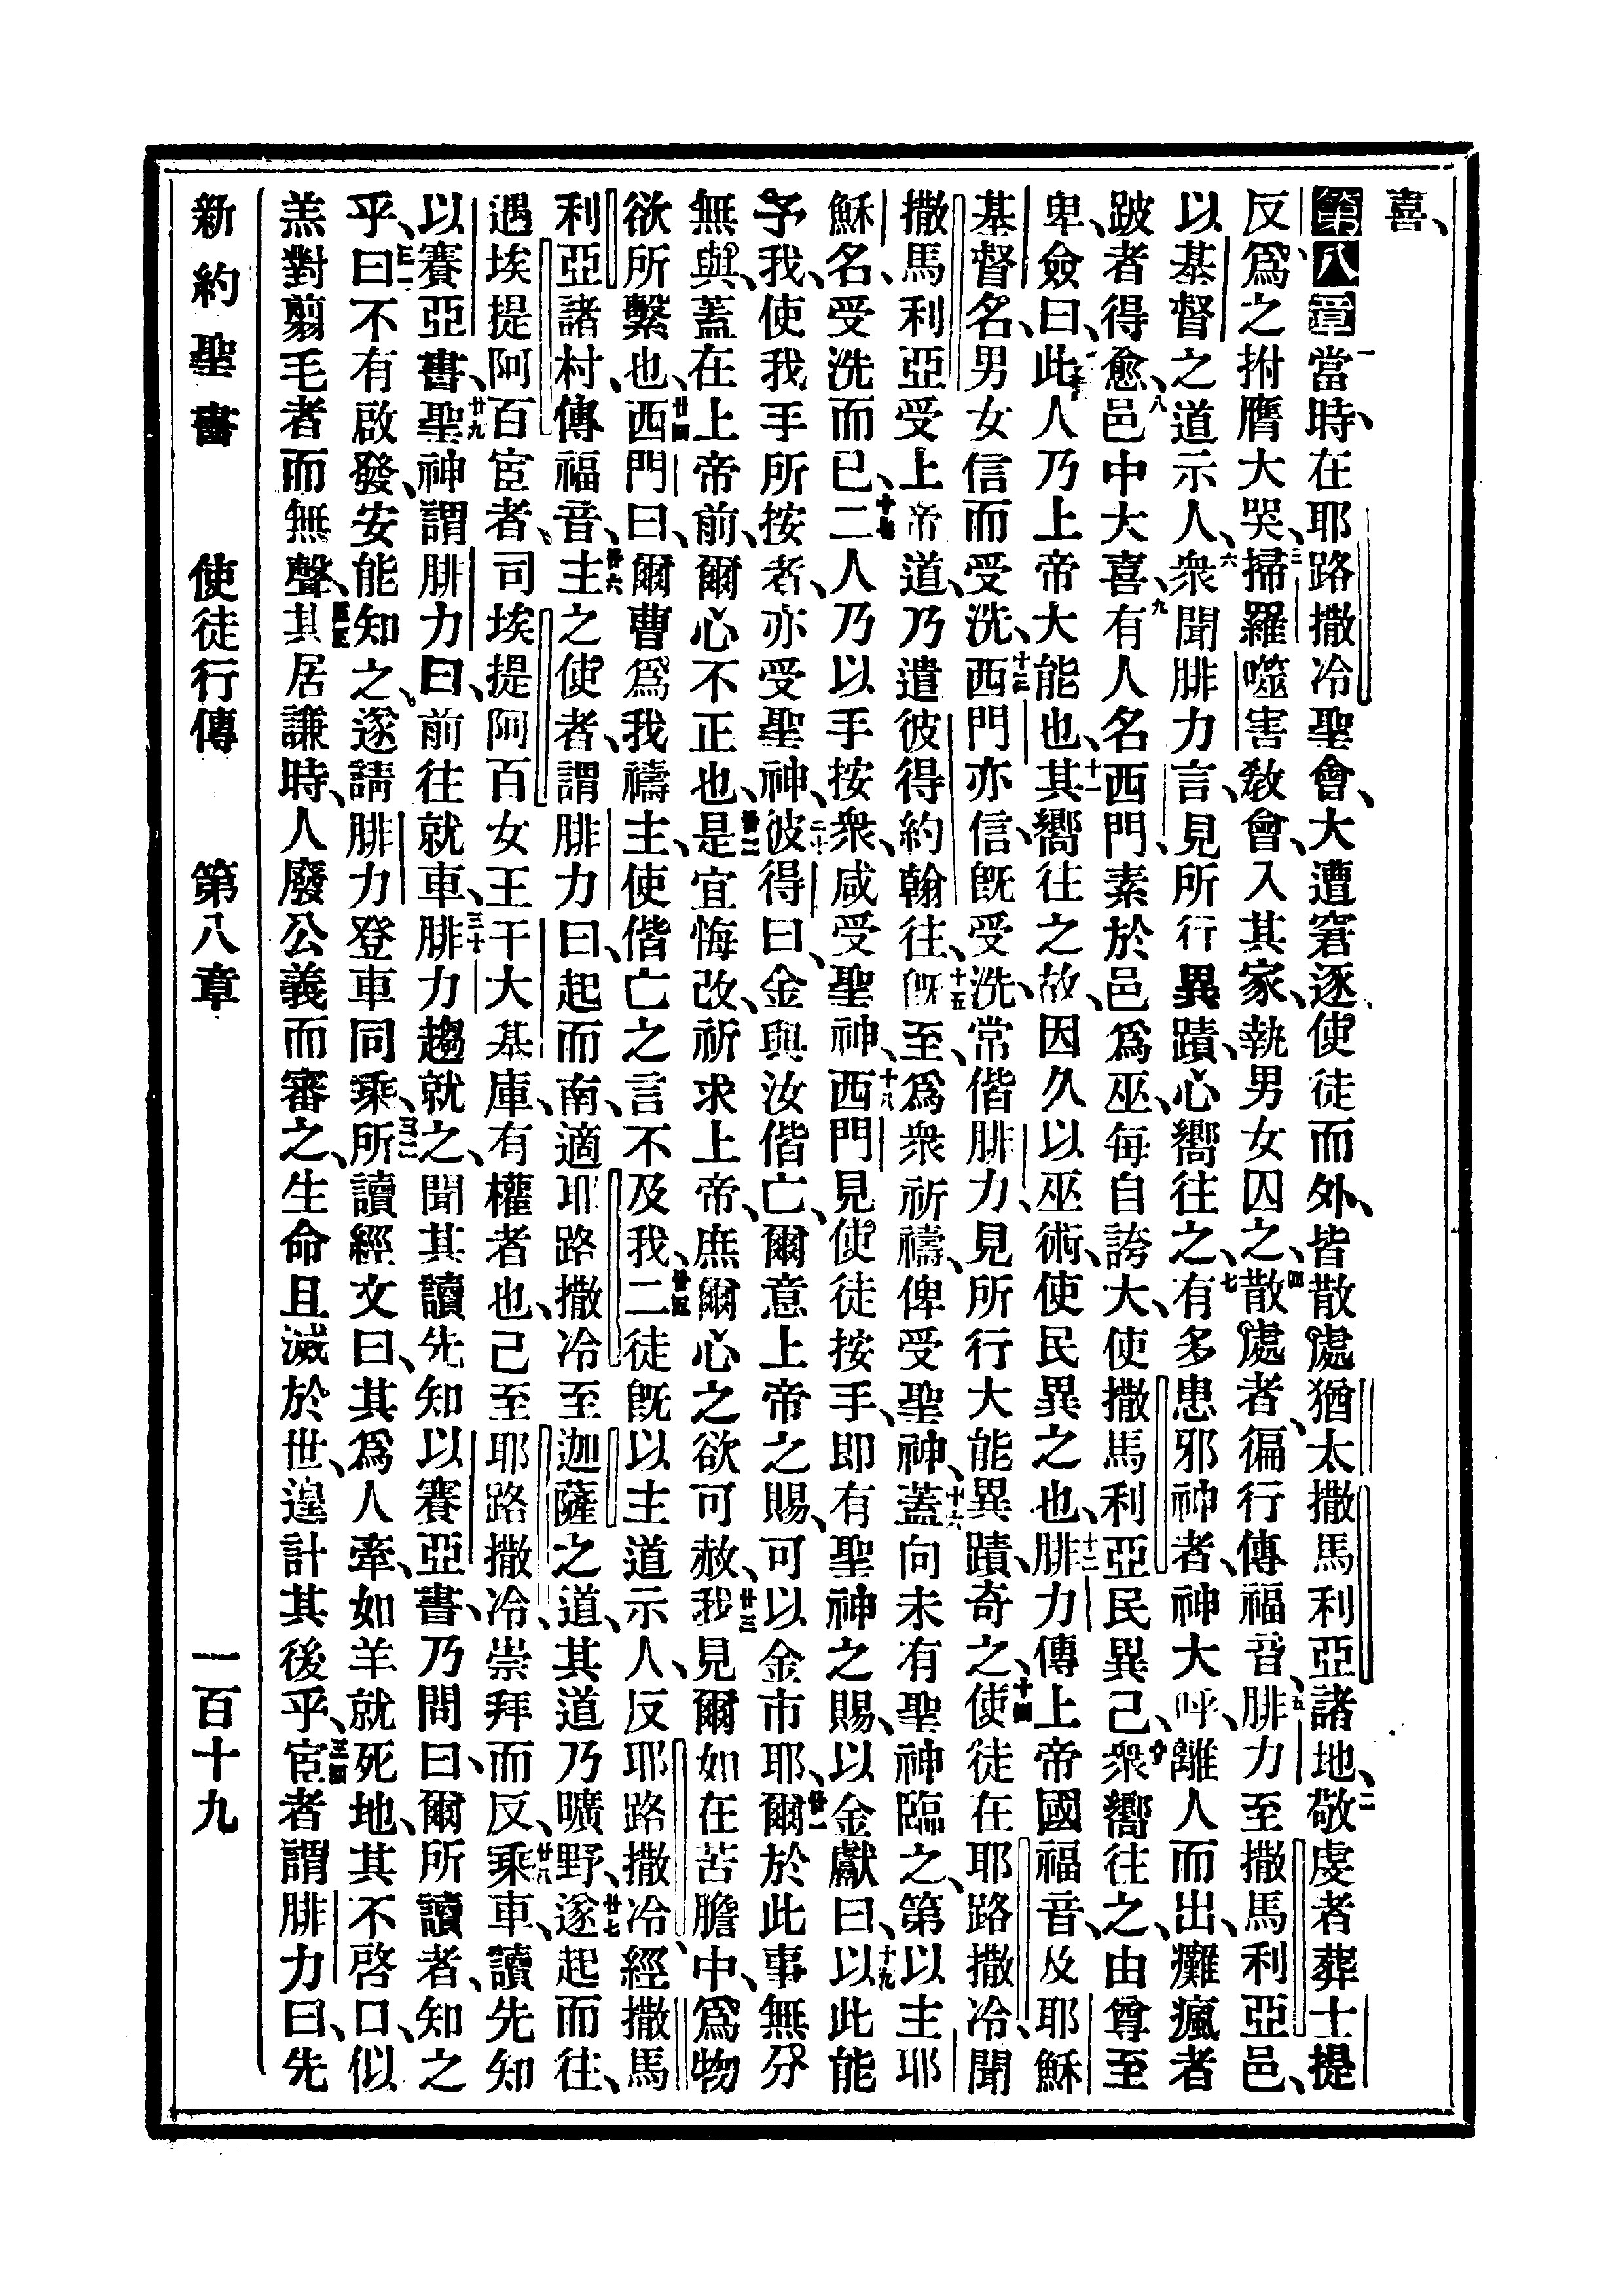 喜、
第八章一當時、在耶路撒冷聖會、大遭窘逐、使徒而外、皆散處猶太撒馬利亞諸地、二敬虔者葬士提
反、爲之拊膺大哭、三掃羅噬害教會、入其家、執男女囚之、四散處者、徧行傳福音、五腓力至撒馬利亞邑、
以基督之道示人、六衆聞腓力言、見所行異蹟、心嚮往之、七有多患邪神者、神大呼、離人而出、癱瘋者
跛者得愈、八邑中大喜、九有人名西門、素於邑爲巫、每自誇大、使撒馬利亞民異己、十衆嚮往之、由尊至
卑、僉曰、此人乃上帝大能也、十一其嚮往之故、因久以巫術、使民異之也、十二腓力傳上帝國福音、及耶穌
基督名、男女信而受洗、十三西門亦信、旣受洗、常偕腓力、見所行大能異蹟、奇之、十四使徒在耶路撒冷、聞
撒馬利亞受上帝道、乃遣彼得約翰往、十五旣至、爲衆祈禱、俾受聖神、十六蓋向未有聖神臨之、第以主耶
穌名、受洗而已、十七二人乃以手按衆、咸受聖神、十八西門見使徒按手、卽有聖神之賜、以金獻曰、十九以此能
予我、使我手所按者、亦受聖神、二十彼得曰、金與汝偕亡、爾意上帝之賜、可以金市耶、廿一爾於此事無分
無與、蓋在上帝前、爾心不正也、廿二是宜悔改、祈求上帝、庶爾心之欲可赦、廿三我見爾如在苦膽中、爲物
欲所繫也、廿四西門曰、爾曹爲我禱主、使偕亡之言不及我、廿五二徒旣以主道示人、反耶路撒冷、經撒馬
利亞諸村、傳福音、廿六主之使者、謂腓力曰、起而南、適耶路撒冷至迦薩之道、其道乃曠野、廿七遂起而往、
遇埃提阿百宦者、司埃提阿百女王干大基庫、有權者也、己至耶路撒冷、崇拜而反、廿八乘車、讀先知
以賽亞書、廿九聖神謂腓力曰、前往就車、三十腓力趨就之、聞其讀先知以賽亞書、乃問曰、爾所讀者、知之
乎、三一曰不有啟發、安能知之、遂請腓力登車同乘、三二所讀經文曰、其爲人牽、如羊就死地、其不啓口、似
羔對剪毛者而無聲、三三其居謙時、人廢公義而審之、生命且滅於世、遑計其後乎、三四宦者謂腓力曰、先
新約聖書　使徒行傳　第八章　一百十九